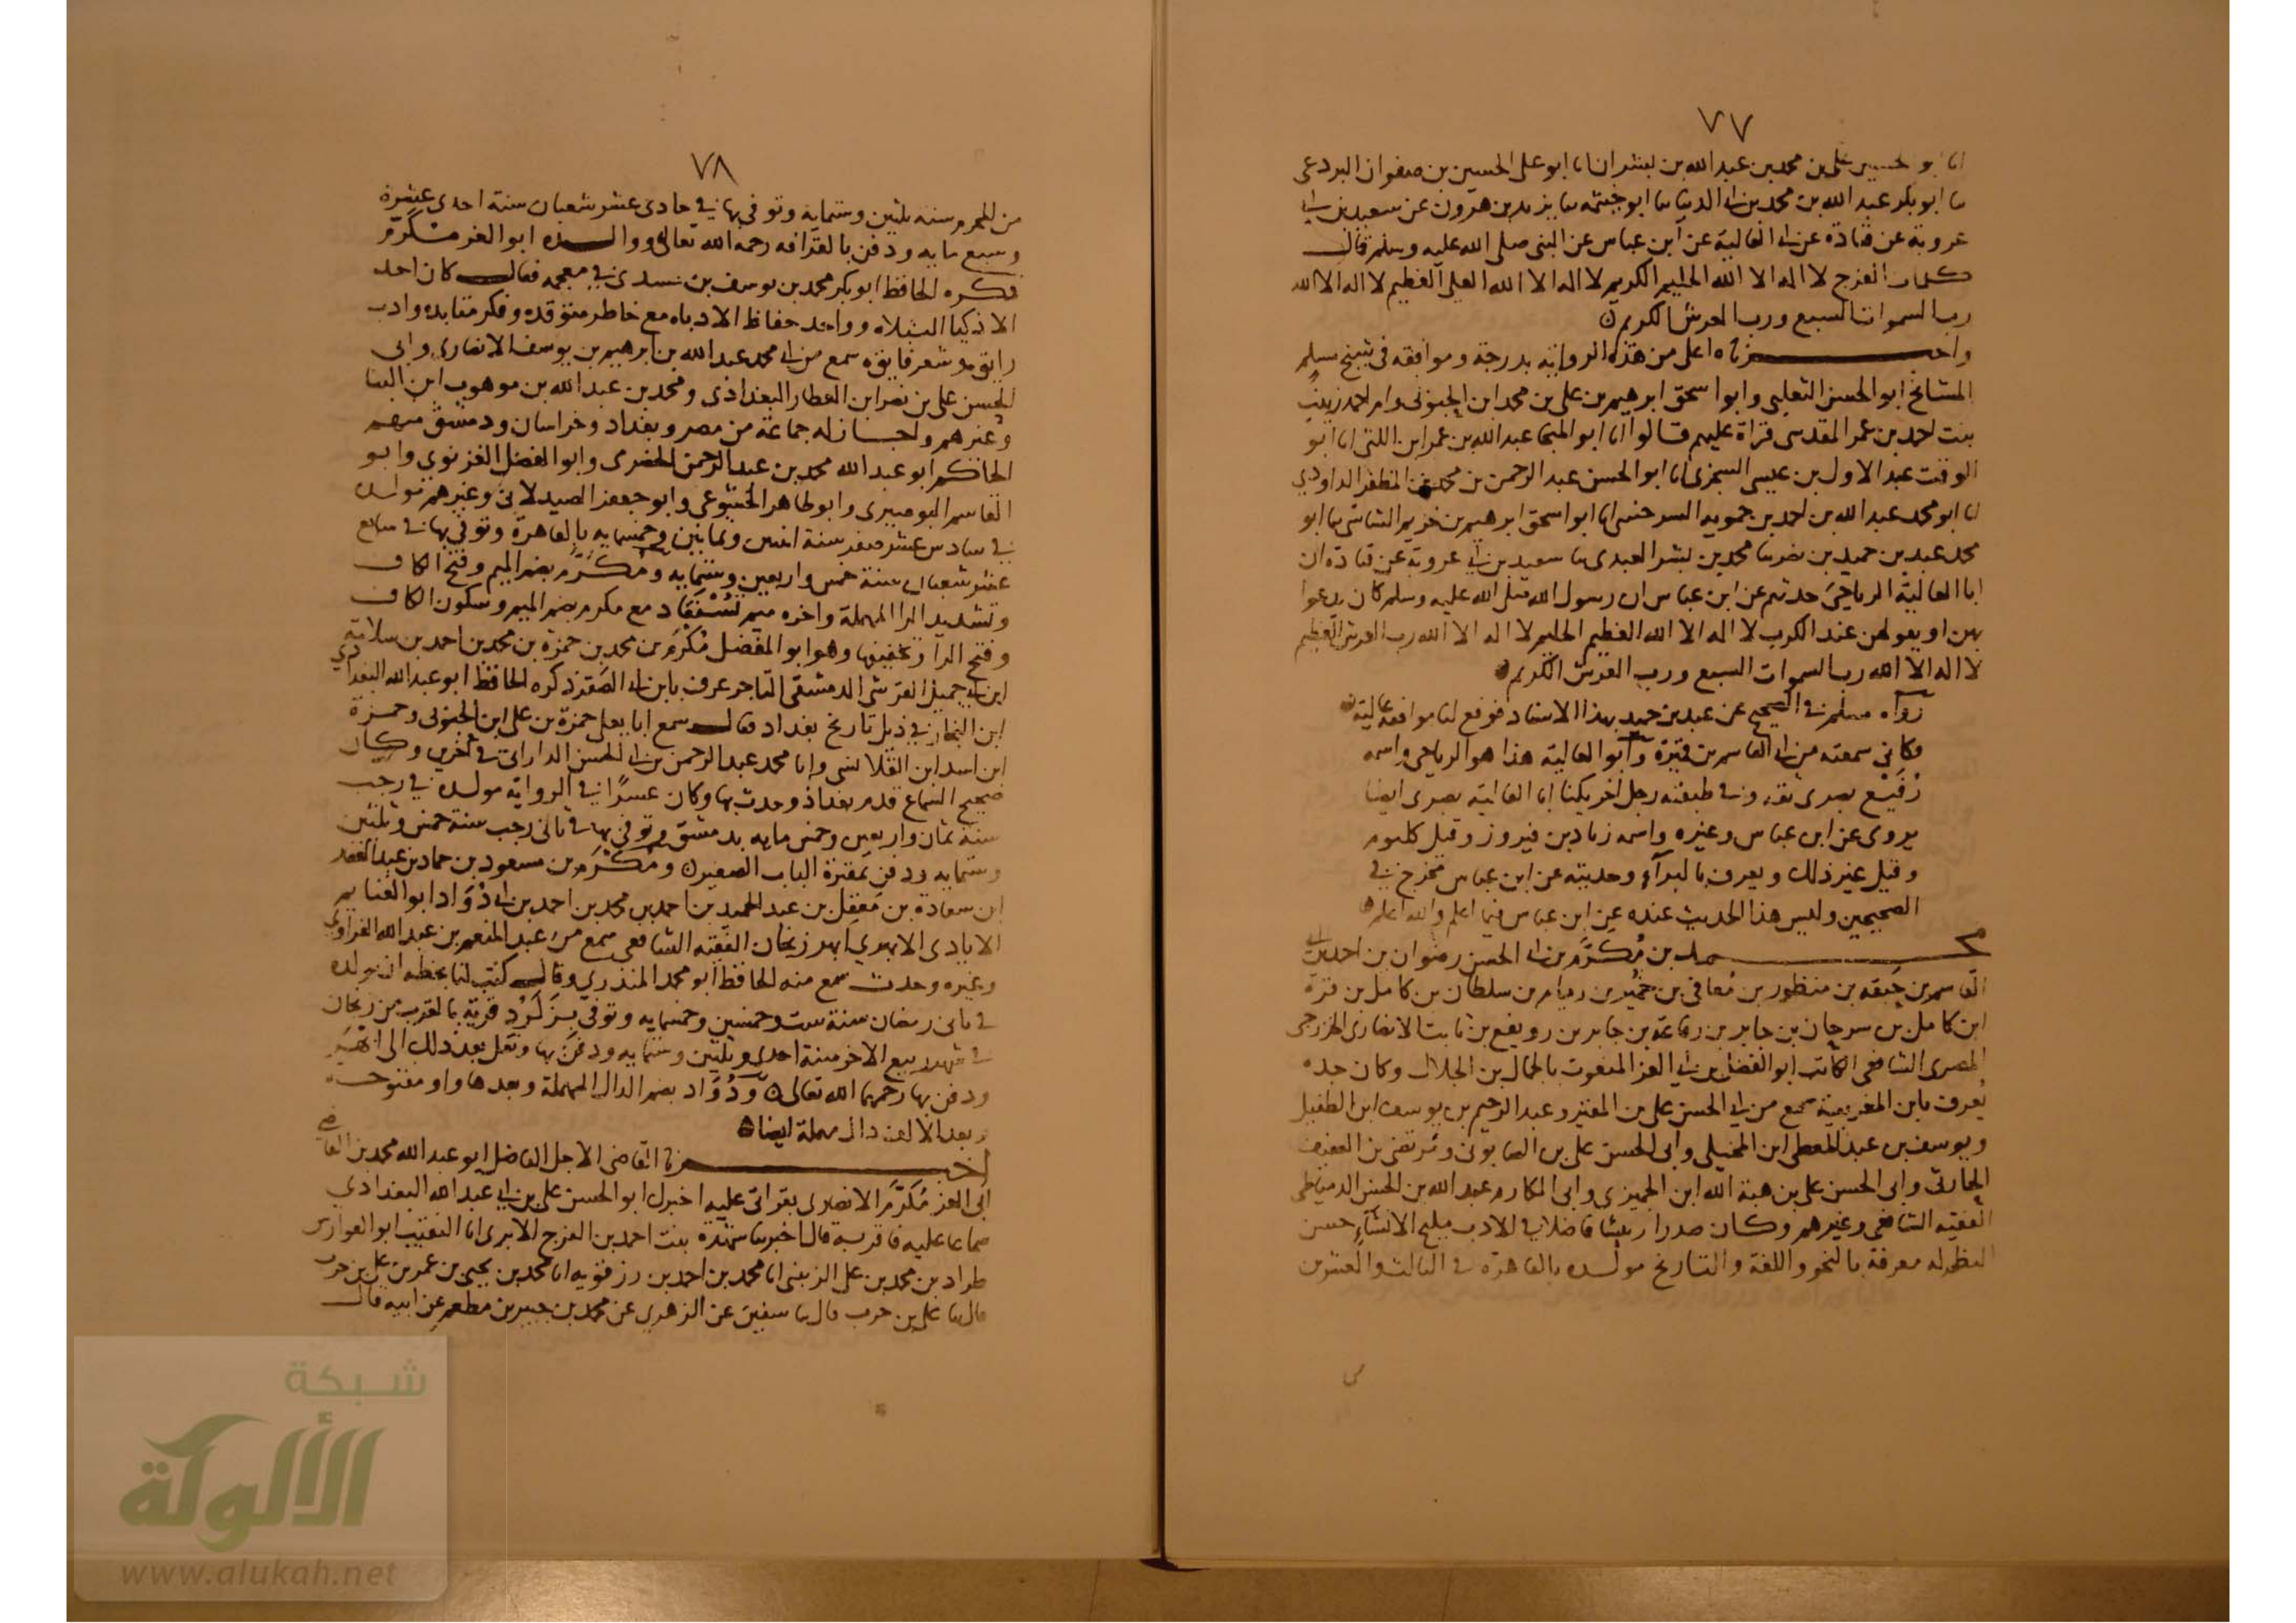 ٧٧
انا ابو الحسين علي بن محمد بن عبد الله بن بشران انا ابو علي الحسين بن صفوان البردعي
ثنا ابو بكر عبد الله بن محمد بن ابي الدنيا ثنا ابو خيثمة ثنا يزيد بن هرون عن سعيد بن ابي
عروبة عن قتادة عن ابي العالية عن ابن عباس عن النبي صلى الله عليه وسلم قال
كلمات الفرج لا اله الا الله الحليم الكريم لا اله الا الله العلي العظيم لا اله الا الله
رب السموات السبع ورب العرش الكريم
واخبرناه اعلى من هذه الرواية بدرجة وموافقة في شيخ مسلم
المشائخ ابو الحسن الثعلبي وابو اسحق ابرهيم بن علي بن محمد ابن الحبوبي وام احمد زينب
بنت احمد بن عمر المقدسي قراة عليهم قالوا انا ابو المنجا عبد الله بن عمر ابن اللتي انا ابو
الوقت عبد الاول بن عيسى السجزي انا ابو الحسن عبد الرحمن بن محمد بن المظفر الداودي
انا ابو محمد عبد الله بن احمد بن حمويه السرخسي انا ابو اسحق ابرهيم بن خزيم الشاشي ثنا ابو
محمد عبد بن حميد بن نصر ثنا محمد بن بشر العبدي ثنا سعيد بن ابي عروبة عن قتادة ان
ابا العالية الرياحي حدثهم عن ابن عباس ان رسول الله صلى الله عليه وسلم كان يدعوا
بهن او يقولهن عند الكرب لا اله الا الله العظيم الحليم لا اله الا الله رب العرش العظيم
لا اله الا الله رب السموات السبع ورب العرش الكريم
رواه مسلم في الصحيح عن عبد بن حميد بهذا الاسناد فوقع لنا موافقة عالية
فكاني سمعته من ابي القاسم بن فيرة وابو العالية هذا هو الرياحي واسمه
رُفَيْع بصري ثقة وفي طبقته رجل اخر يكنا ابا العالية بصري ايضا
يروي عن ابن عباس وغيره واسمه زياد بن فيروز وقيل كلثوم
وقيل غير ذلك ويعرف بالبرآء وحديثه عن ابن عباس مخرج في
الصحيحين وليس هذا الحديث عنده عن ابن عباس فيما اعلم والله اعلم
محمد بن مُكَرَّم بن ابي الحسن رضوان بن احمد بن ابي
القاسم بن حبقه بن منظور بن مُعافى بن خمير بن ريام بن سلطان بن كامل بن قرة
ابن كامل بن سرحان بن جابر بن رفاعة بن جابر بن رويفع بن ثابت الانصاري الخزرجي
المصري الشافعي الكاتب ابو الفضل بن ابي العز المنعوت بالجمال بن الجلال وكان جده
يُعرف بابن المغربية سمع من ابي الحسن علي بن المقير وعبد الرحيم بن يوسف ابن الطفيل
ويوسف بن عبد المعطي ابن المخيلي وابي الحسن علي بن الصابوني ومرتضى بن العفيف
الحارثي وابي الحسن علي بن هبة الله ابن الجميزي وابي المكارم عبد الله بن الحسن الدمياطي
الفقيه الشافعي وغيرهم وكان صدرا رئيسا فاضلا في الادب مليح الانشآء حسن
النظم له معرفة بالنحو واللغة والتاريخ مولده بالقاهرة في الثالث والعشرين
٧٨
من المحرم سنه ثلثين وستمايه وتوفي بها في حادي عشر شعبان سنة احدى عشرة
وسبع مايه ودفن بالقرافه رحمه الله تعالى ووالده ابو العز مُكَرَّم
ذكره الحافظ ابو بكر محمد بن يوسف بن مسدي في معجمه فقال كان احد
الاذكيا النبلاء وواحد حفاظ الادباء مع خاطر متوقد وفكر متقايد وادب
رايق وشعر فايق سمع من ابي محمد عبد الله بن ابرهيم بن يوسف الانصاري وابي
الحسن علي بن نصر ابن العطار البغدادي ومحمد بن عبد الله بن موهوب ابن البنا
وغيرهم واجاز له جماعة من مصر وبغداد وخراسان ودمشق منهم
الحاكم ابو عبد الله محمد بن عبد الرحمن الحضرمي وابو الفضل الغزنوي وابو
القاسم البوصيري وابو طاهر الخشوعي وابو جعفر الصيدلاني وغيرهم مولده
في سادس عشر صفر سنة اثنين وثمانين وخمسمايه بالقاهرة وتوفي بها في سابع
عشر شعبان سنة خمس واربعين وستمايه ومُكَرَّم بضم الميم وفتح الكاف
وتشديد الرا المهملة واخره ميم يُسْتَفَاد مع مكرم بضم الميم وسكون الكاف
وفتح الرا وتخفيفها وهو ابو المفضل مُكْرَم بن محمد بن حمزة بن محمد بن احمد بن سلامة
ابن ابي جميل القرشي الدمشقي التاجر عرف بابن ابي الصَقر ذكره الحافظ ابو عبد الله البغدادي
ابن النجار في ذيل تاريخ بغداد فقال سمع ابا يعلى حمزة بن علي ابن الحبوبي وحمزة
ابن اسد ابن القلانسي وابا محمد عبد الرحمن بن ابي الحسن الداراني في آخرين وكان
صحيح السماع قدم بغداد وحدث بها وكان عسرًا في الرواية مولده في رجب
سنة ثمان واربعين وخمس مايه بدمشق وتوفي بها في ثاني رجب سنة خمس وثلثين
وستمايه ودفن بمقبرة الباب الصغير ومُكْرَم بن مسعود بن حماد بن عبد الغفار
ابن سعادة بن مَعقِل بن عبد الحميد بن احمد بن محمد بن احمد بن ابي دُوَاد ابو الغنايم
الايادي الابهري ابهر زنجان الفقيه الشافعي سمع من عبد المنعم بن عبد الله الفراوي
وغيره وحدث سمع منه الحافظ ابو محمد المنذري وقال كتب لنا بخطه ان مولده
في ثاني رمضان سنة ست وخمسين وخمسمايه وتوفي قرية بالقرب من زنجان
في شهر ربيع الاخر سنة احدى وثلثين وستمايه ودفن بها ونقل بعد ذلك الى ابهر
ودفن بها رحمهما الله تعالى ودُوَاد بضم الدال المهملة وبعدها واو مفتوحة
وبعد الالف دال مهملة ايضا
اخبرنا القاضي الاجل الفاضل ابو عبد الله محمد بن القاضي
ابي العز مُكَرَّم الانصاري بقراتي عليه اخبرك ابو الحسن علي بن ابي عبد الله البغدادي
سماعا عليه فاقر به قال اخبرتنا شهدة بنت احمد بن الفرج الابري انا النقيب ابو الفوارس
طراد بن محمد بن علي الزينبي انا محمد بن احمد بن رزقويه انا محمد بن يحيى بن عمر بن علي بن حرب
قال ثنا علي بن حرب قال ثنا سفين عن الزهري عن محمد بن جبير بن مطعم عن ابيه قال
شبكة
الألوكة
www.alukah.net